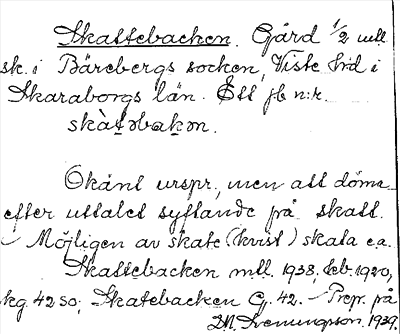 Skattebacken. Gård 1/2 mtl
sk. i Bärebergs socken, Viste hrd i
Skaraborgs län. Ett jb n:r.
skàt̠ɔbak̠ɔn.
Okänt urspr., men att döma
efter uttalet syftande på skatt.
Möjligen av skate (kvist) skata e.a.
Skattebacken mtl. 1938, Jeb. 1920,
kg 4250, Skatebacken G. 42. Prep. på